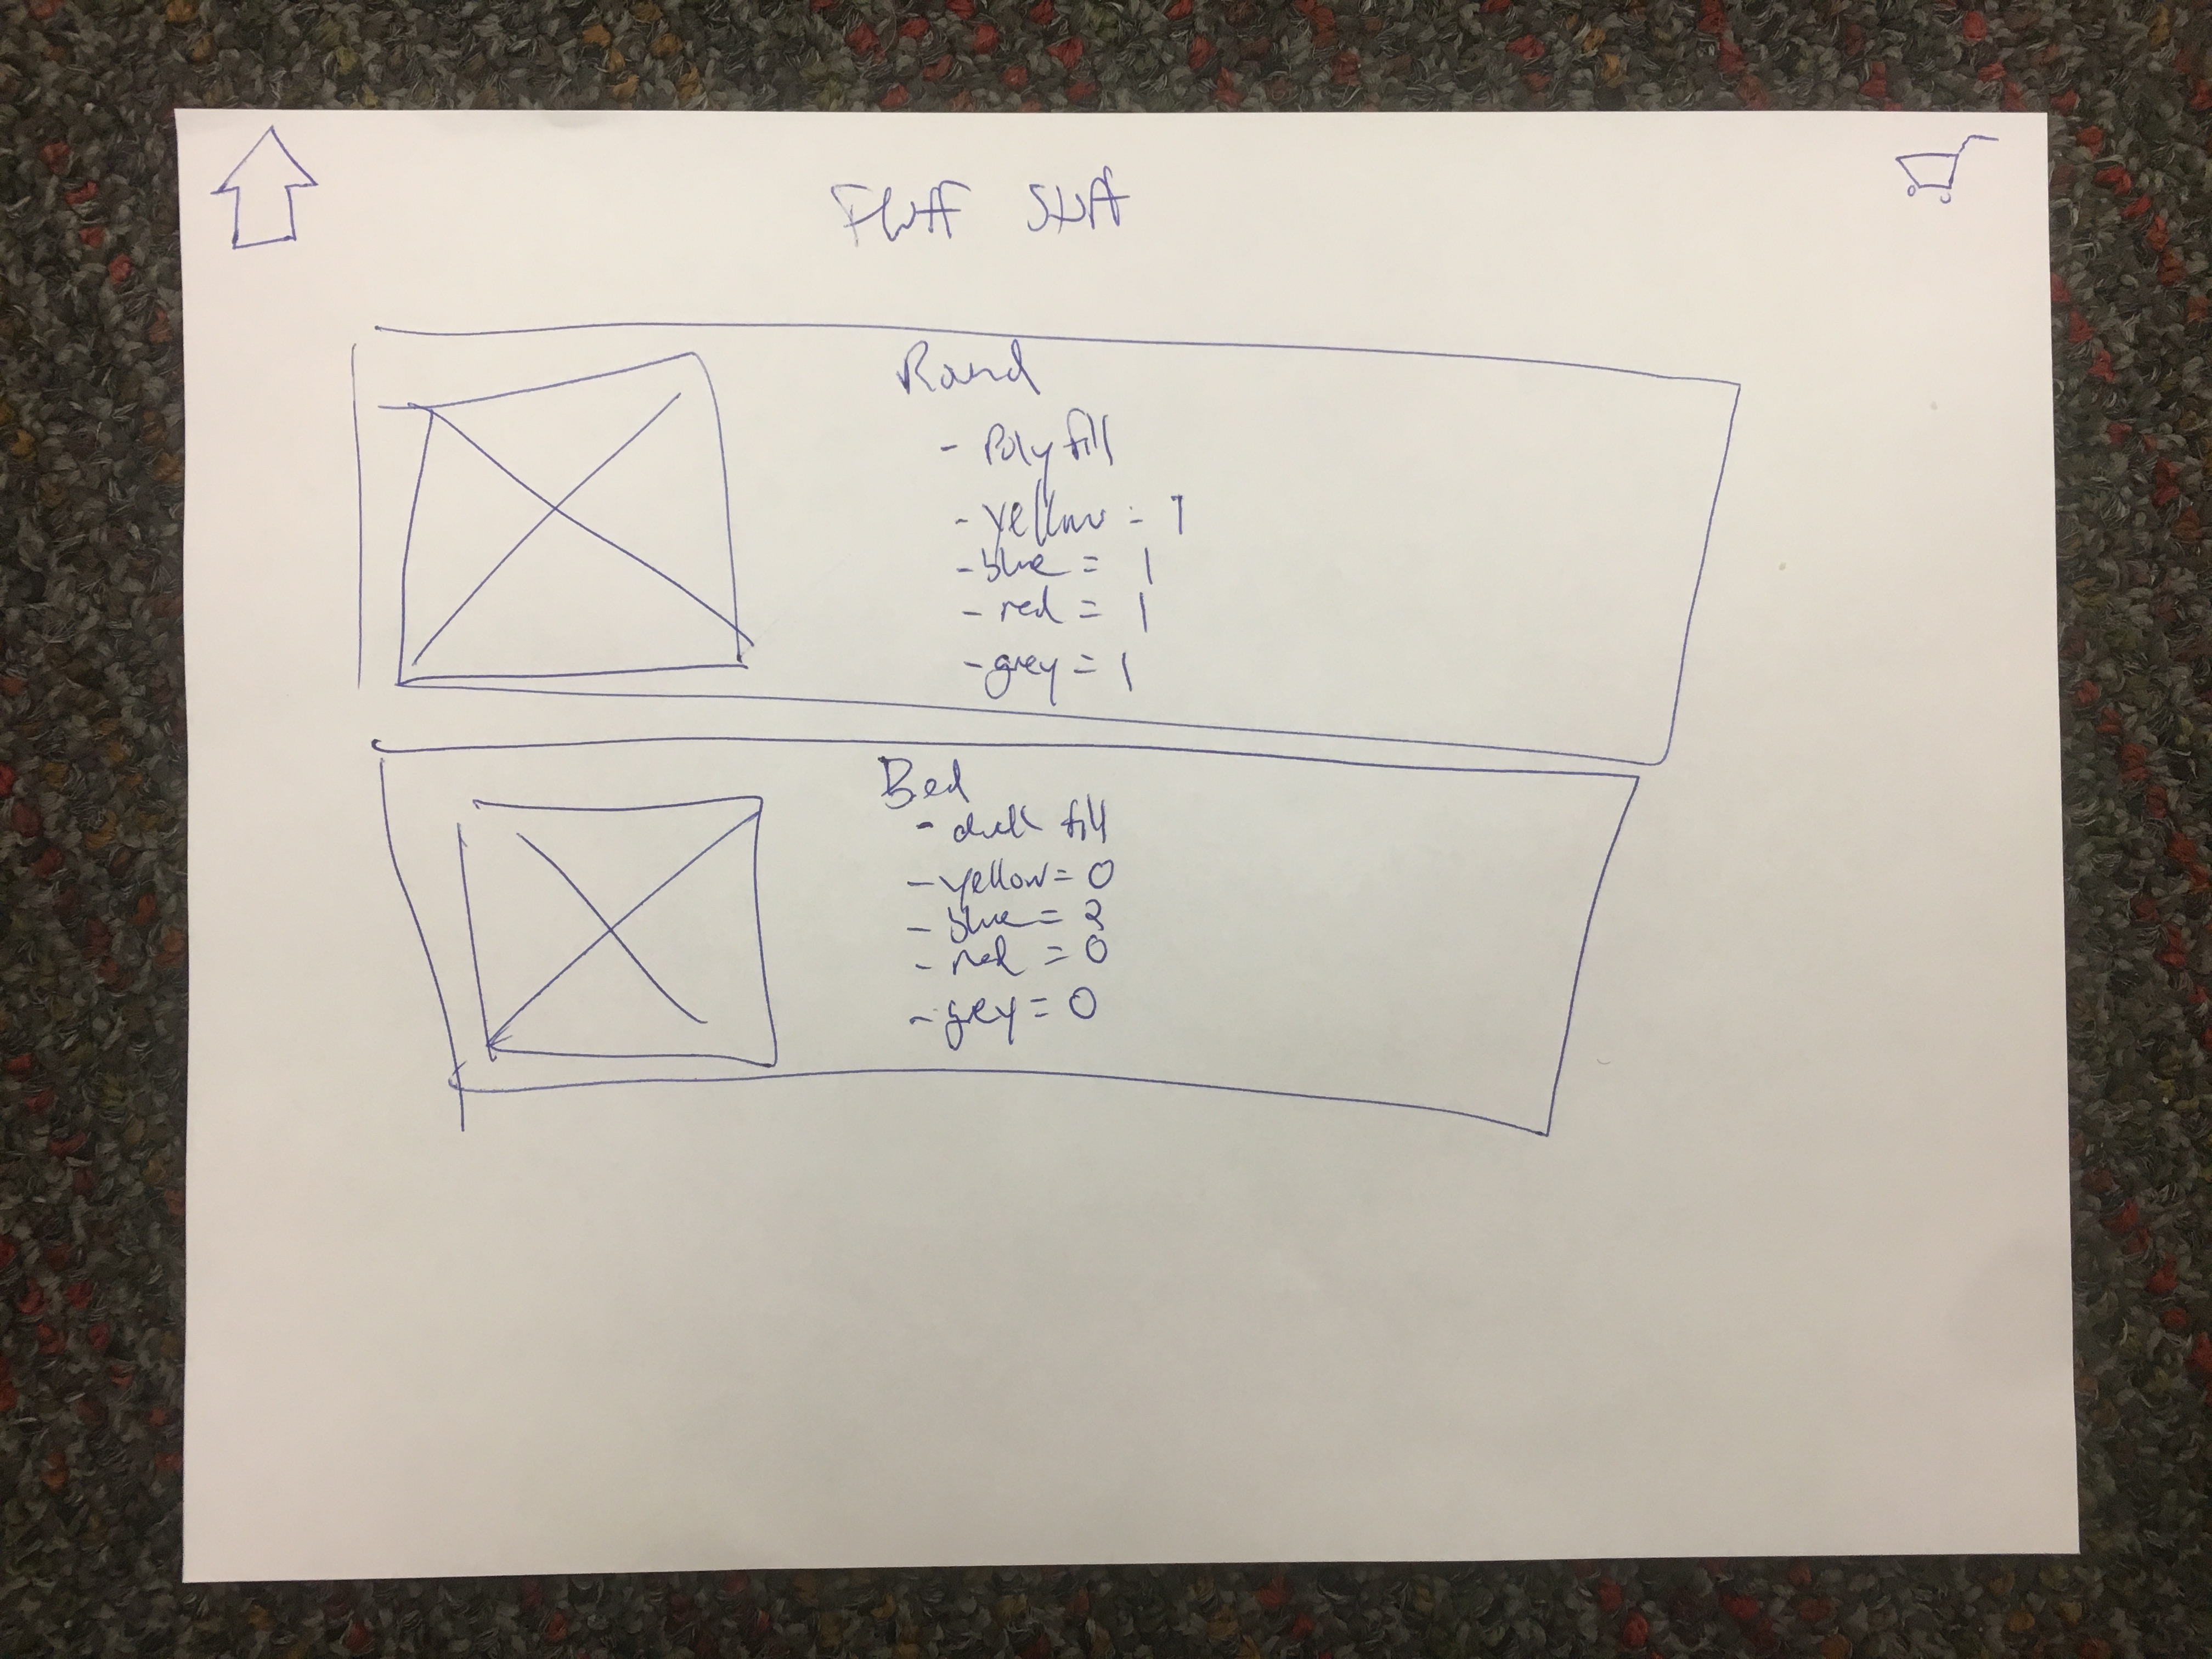 Fluff Stuff
Round
- Poly fill
- yellow = 1
- blue = 1
- red = 1
- grey = 1
Bed
- fill
- yellow = 0
- blue = 2
- red = 0
- grey = 0